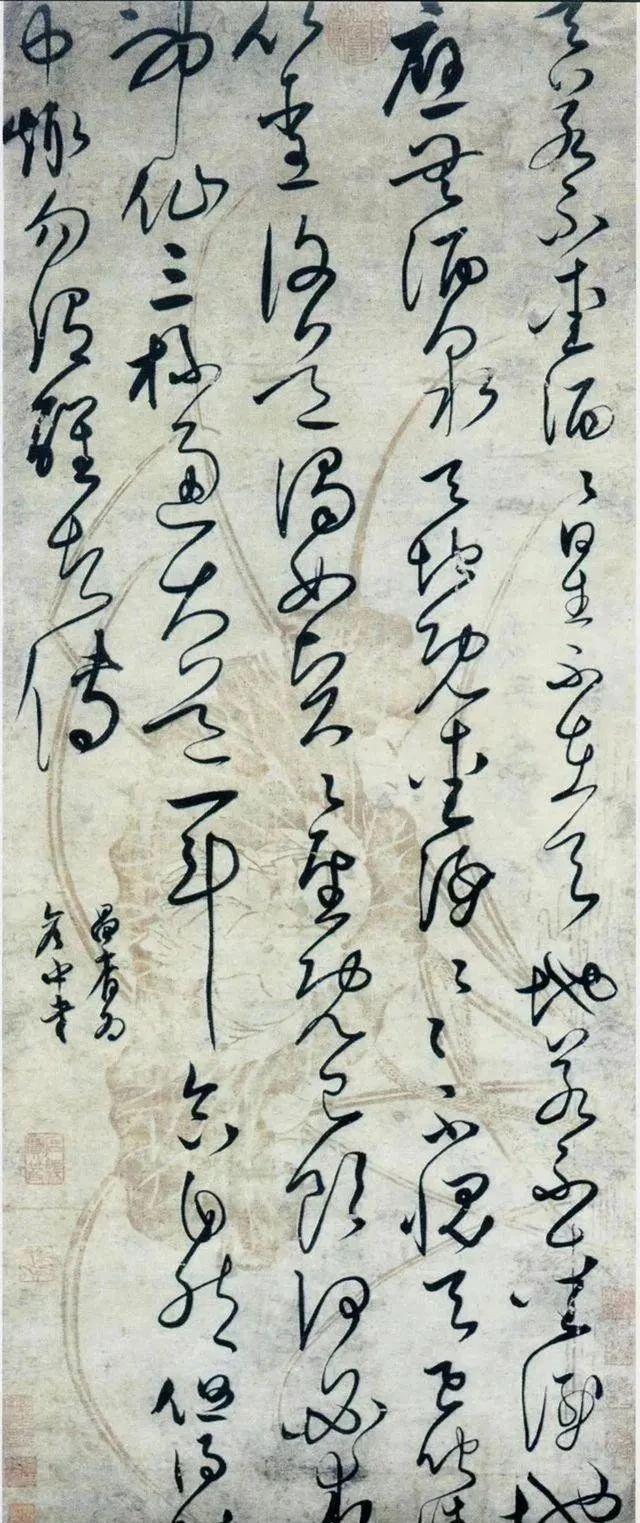 天若不愛酒〻星不在天地若不愛酒地
應無酒泉天地既愛酒〻〻不愧天已聞清
比聖復道濁如賢〻聖既已飲何必求
神仙三杯通大道一斗合自然但得酒
中趣勿謂醒者傳
齋為
中書